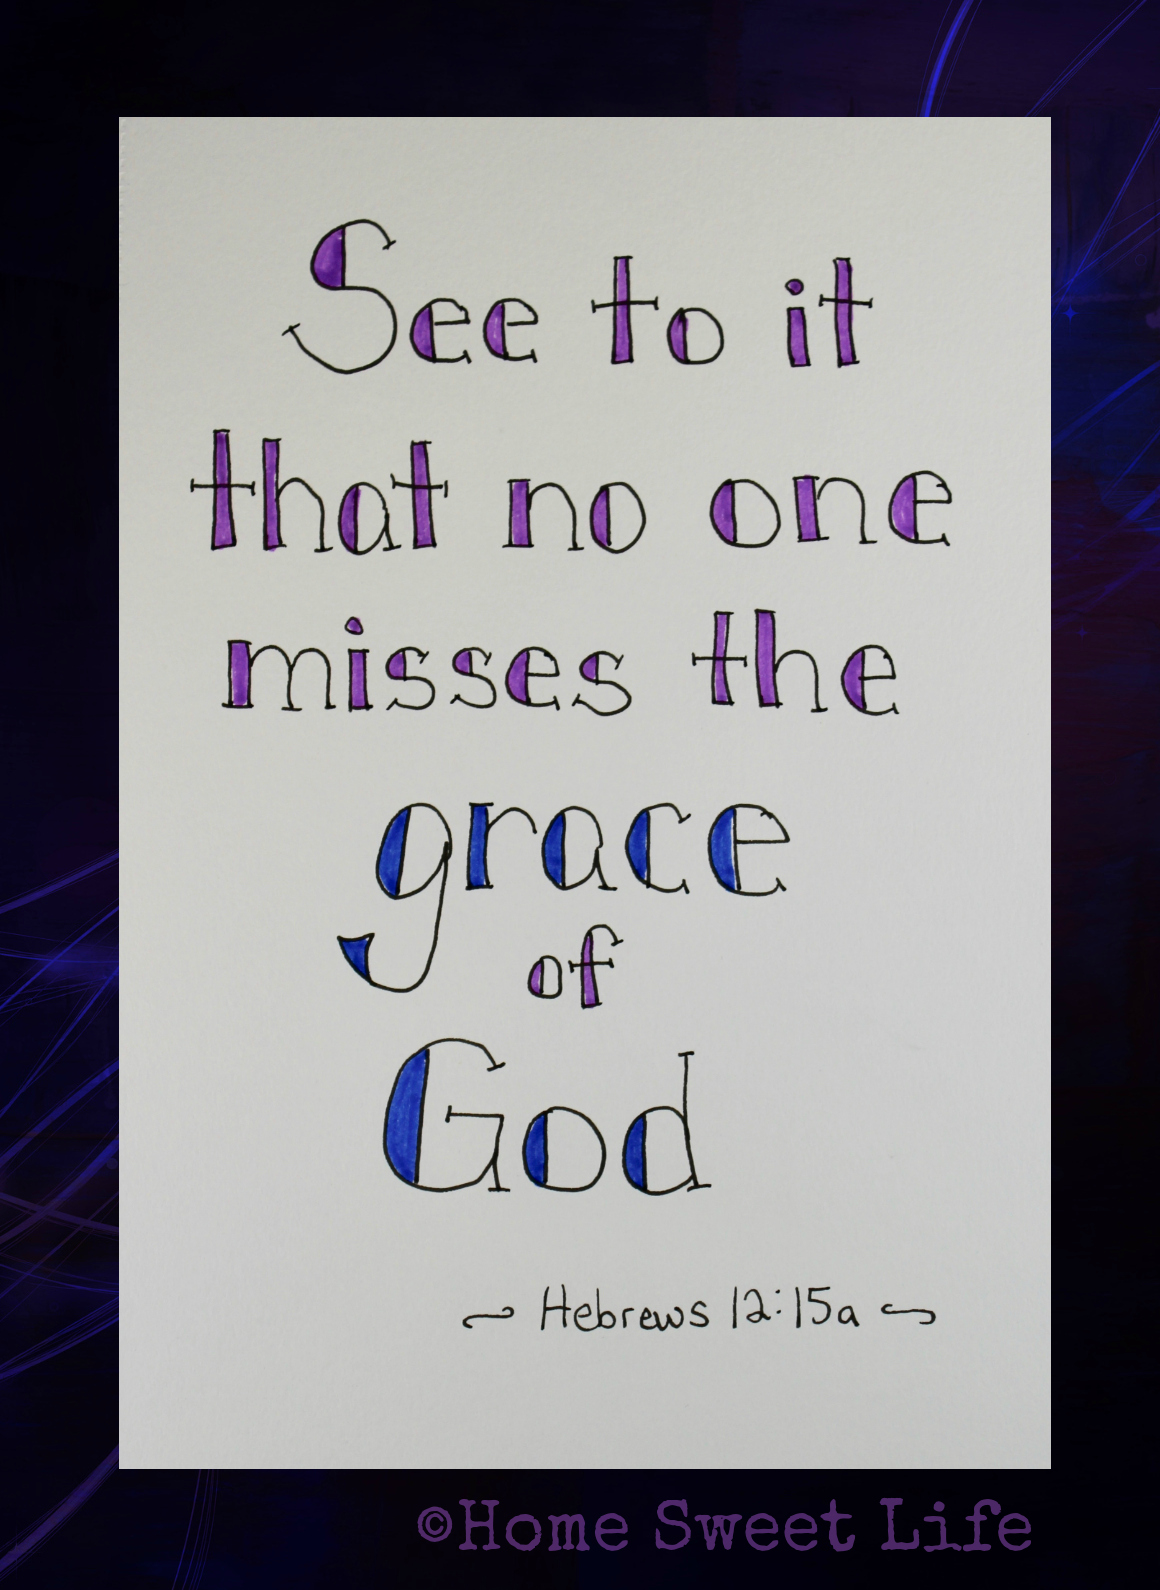 See to it
that no one
misses the
grace
of
God
~ Hebrews 12:15a ~
©Home Sweet Life